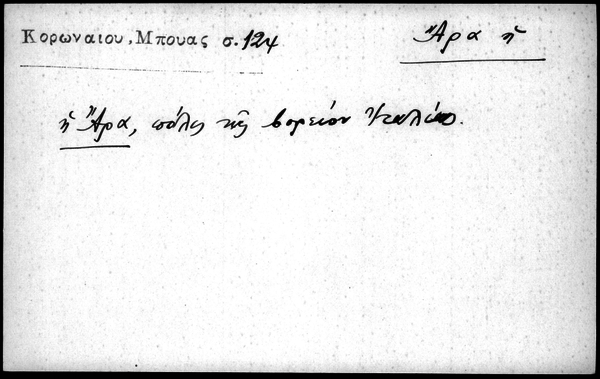 Κορωναιου, Μπουας σ. 124
Ἄρα ἡ
ἡ Ἄρα, πόλις τῆς βορείου Ἰταλίας.